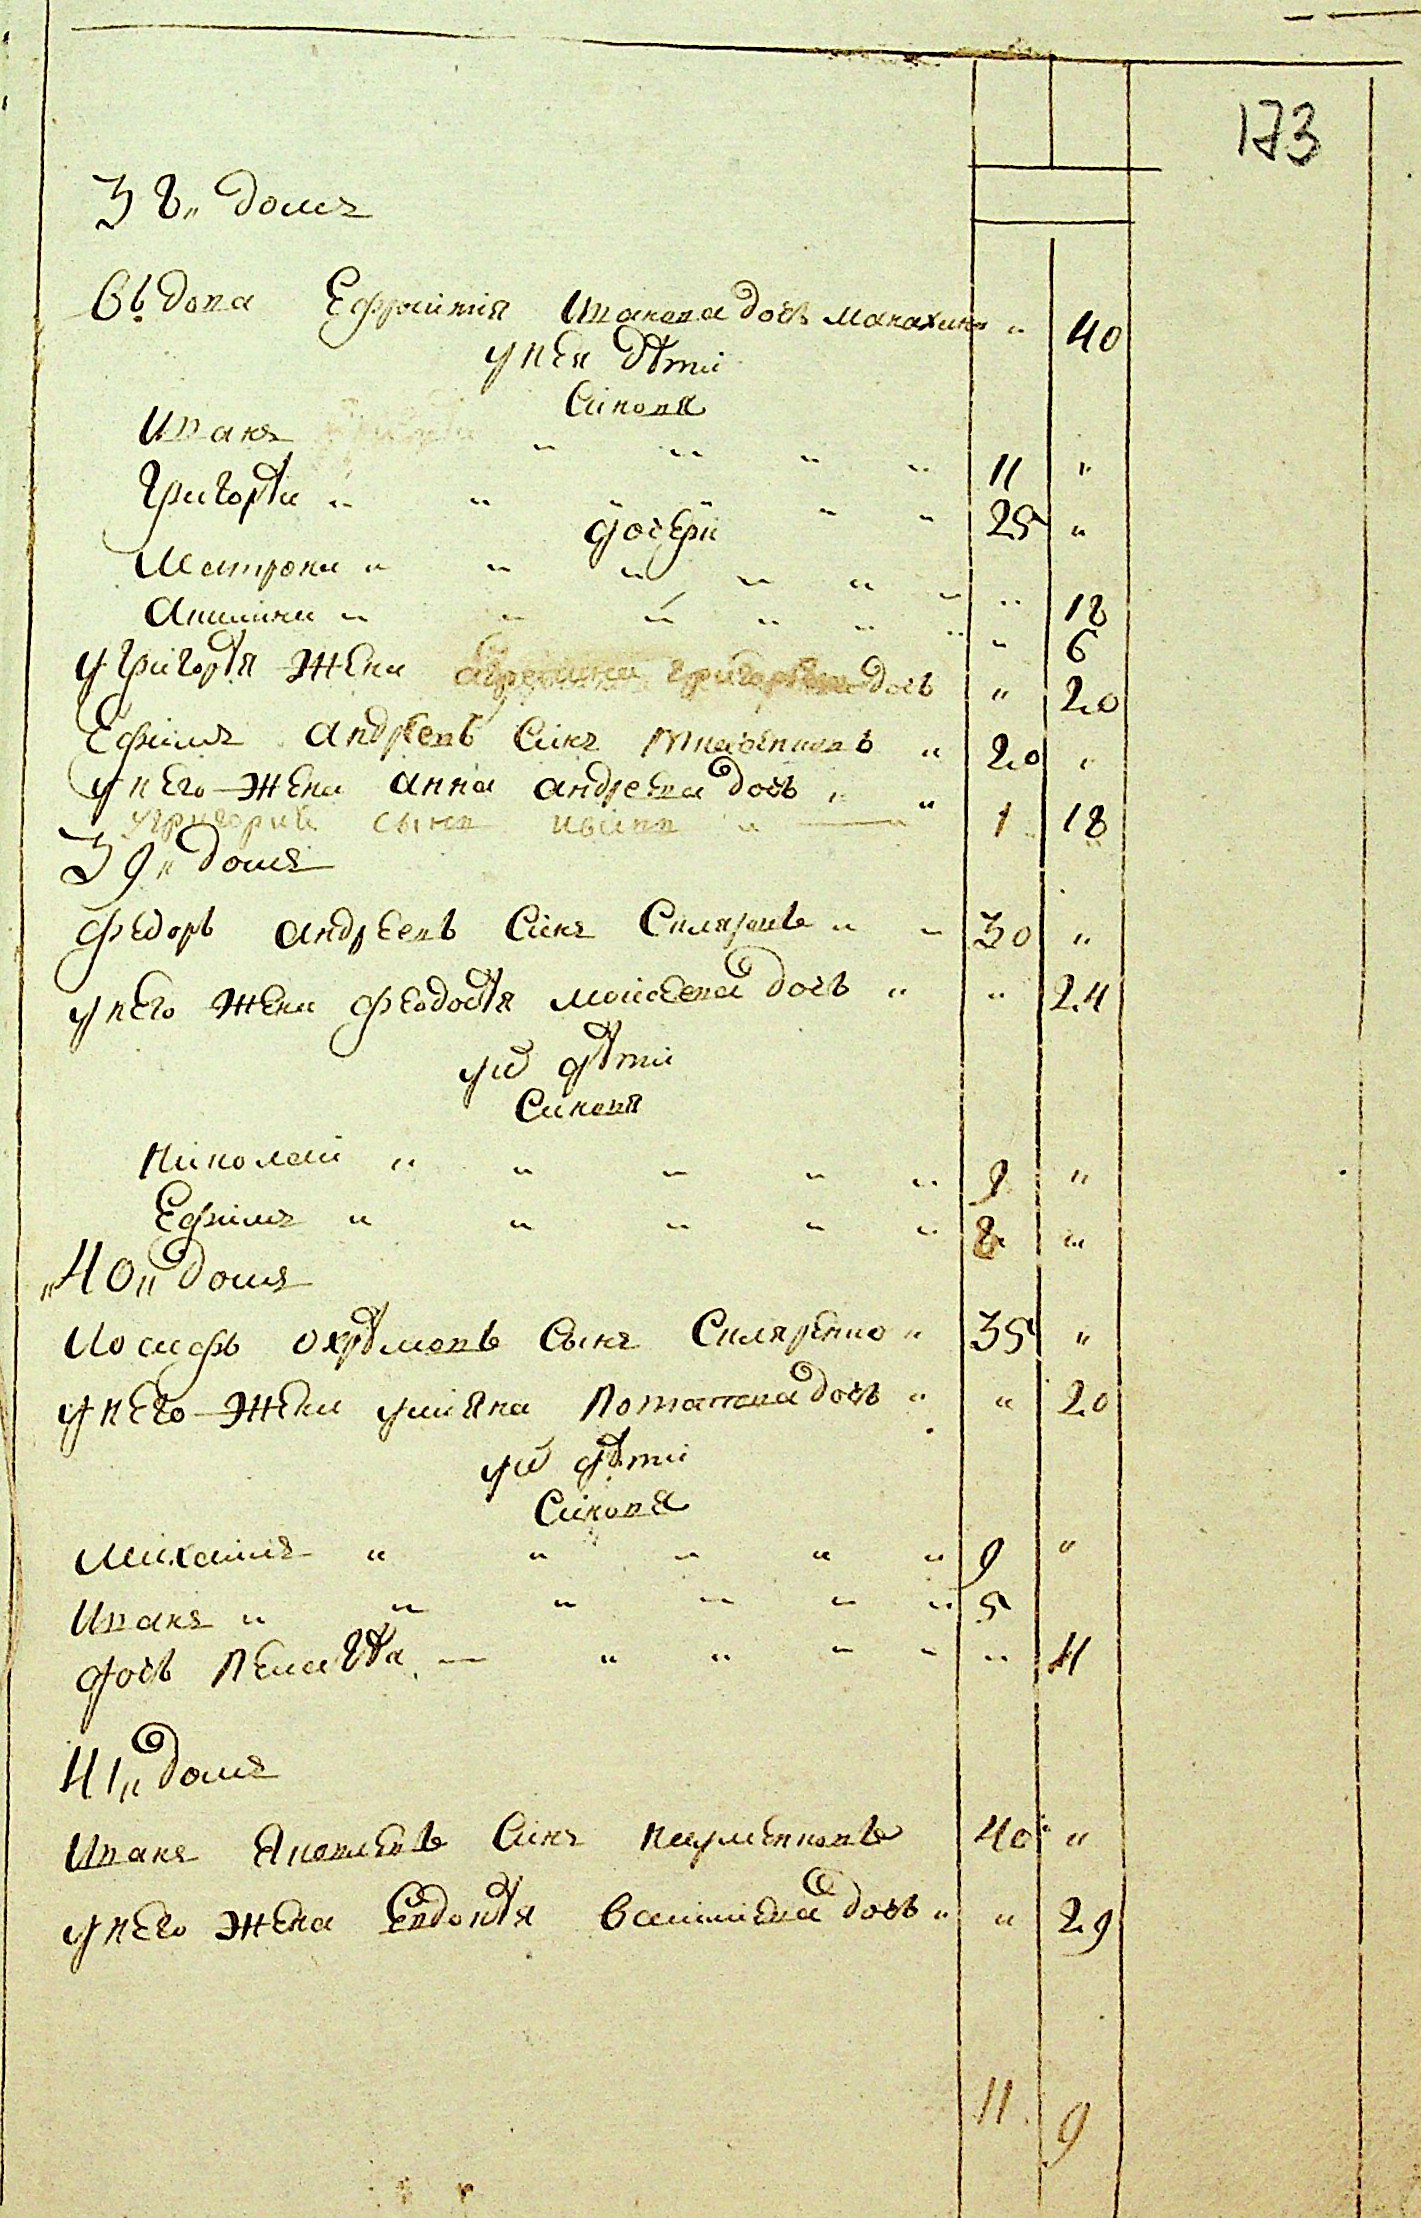 173
38 „ домъ
Въдова Ефросинія Иванова дочь Манахина „ 40
у нея дѣти
Синовя
Иванъ „ „ „ „ 11 „
Григорѣи „ „ „ „ „ 25 „
Дочери
Матрона „ „ „ „ „ „ „ 18
Акилина „ „ „ „ „ „ „ 6
У Григорѣя жена григорѣева дочь „ 20
Ефимъ Андреевъ Синъ „ 20 „
у него жена Анна Андреева дочь „ „ 18
У григорий сынъ иванъ „ — 1
39 „ домъ
Федоръ Андреевъ Синъ Скляровъ „ „ 30 „
у него жена Феодосѣя Моисеева дочь „ „ 24
у й дѣти
Синовя
Николай „ „ „ „ „ 9 „
Ефимъ „ „ „ „ „ 8 „
„ 40 „ домъ
Иосифъ Охрѣмовъ Сынъ Скляренко „ 35 „
у него жена улияна Потапова дочь „ „ 20
у й дѣти
Синовя
Михаилъ „ „ „ „ „ 9 „
Иванъ „ „ „ „ „ „ 5
дочь Пелагѣя — „ „ „ „ „ 4
41 „ домъ
Иванъ Яковлевъ Синъ Науменковъ 40 „
у него жена Евдокѣя Василиева дочь „ „ 29
11 9